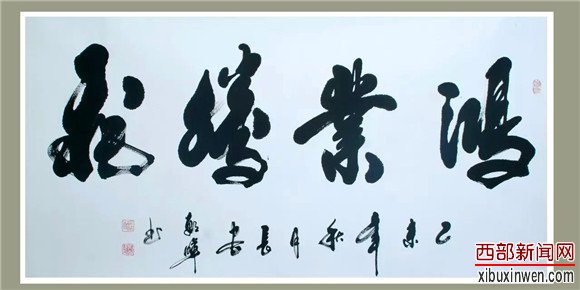 鸿業腾飛
乙未年秋月長安
书
西部新闻网
xibuxinwen.com